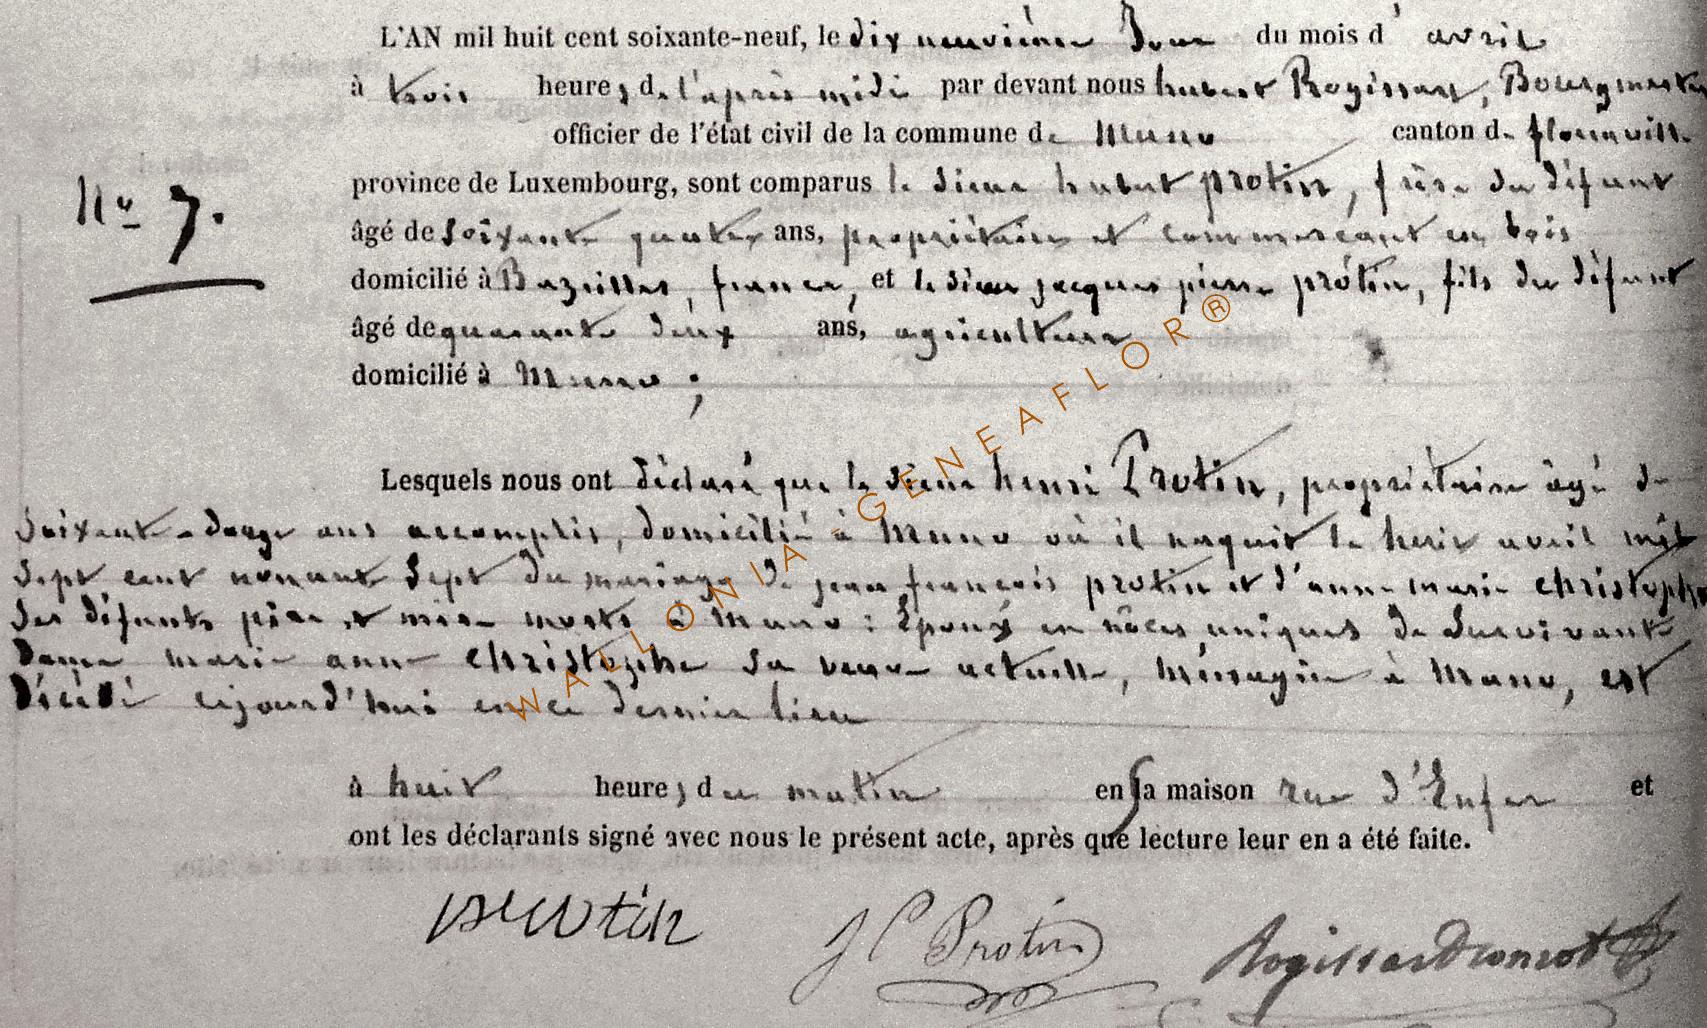 L'AN mil huit cent soixante-neuf, le dix neuvième Jour du mois d'avril
à trois heures de l'après midi par devant nous hubert Rogissart, Bourgmestre
officier de l'état civil de la commune de Muno canton de florenville
N° 7.
province de Luxembourg, sont comparus le sieur hubert protin, frère du défunt
âgé de soixante quatre ans, propriétaire et commerçant en bois
domicilié à Bazeilles, france, et le sieur jacques pierre protin, fils du défunt
âgé de quarante deux ans, agriculteur
domicilié à Muno ;
Lesquels nous ont déclaré que le sieur henri Protin, propriétaire âgé de
Soixante-douze ans accomplis, domicilié à Muno où il naquit le huit avril mil
Sept cent nonante Sept du mariage de jean françois protin et d'anne marie christophe
Ses défunts père et mère morts à Muno : Epoux en nôces uniques de Survivante
Dame marie anne christophe sa veuve actuelle, ménagère à Muno, est
décédé cejourd'hui en ce dernier lieu
à huit heures du matin en sa maison rue d'Enfer et
ont les déclarants signé avec nous le présent acte, après que lecture leur en a été faite.
protin J P Protin Rogissart
WALLONIA-GENEAFLOR®